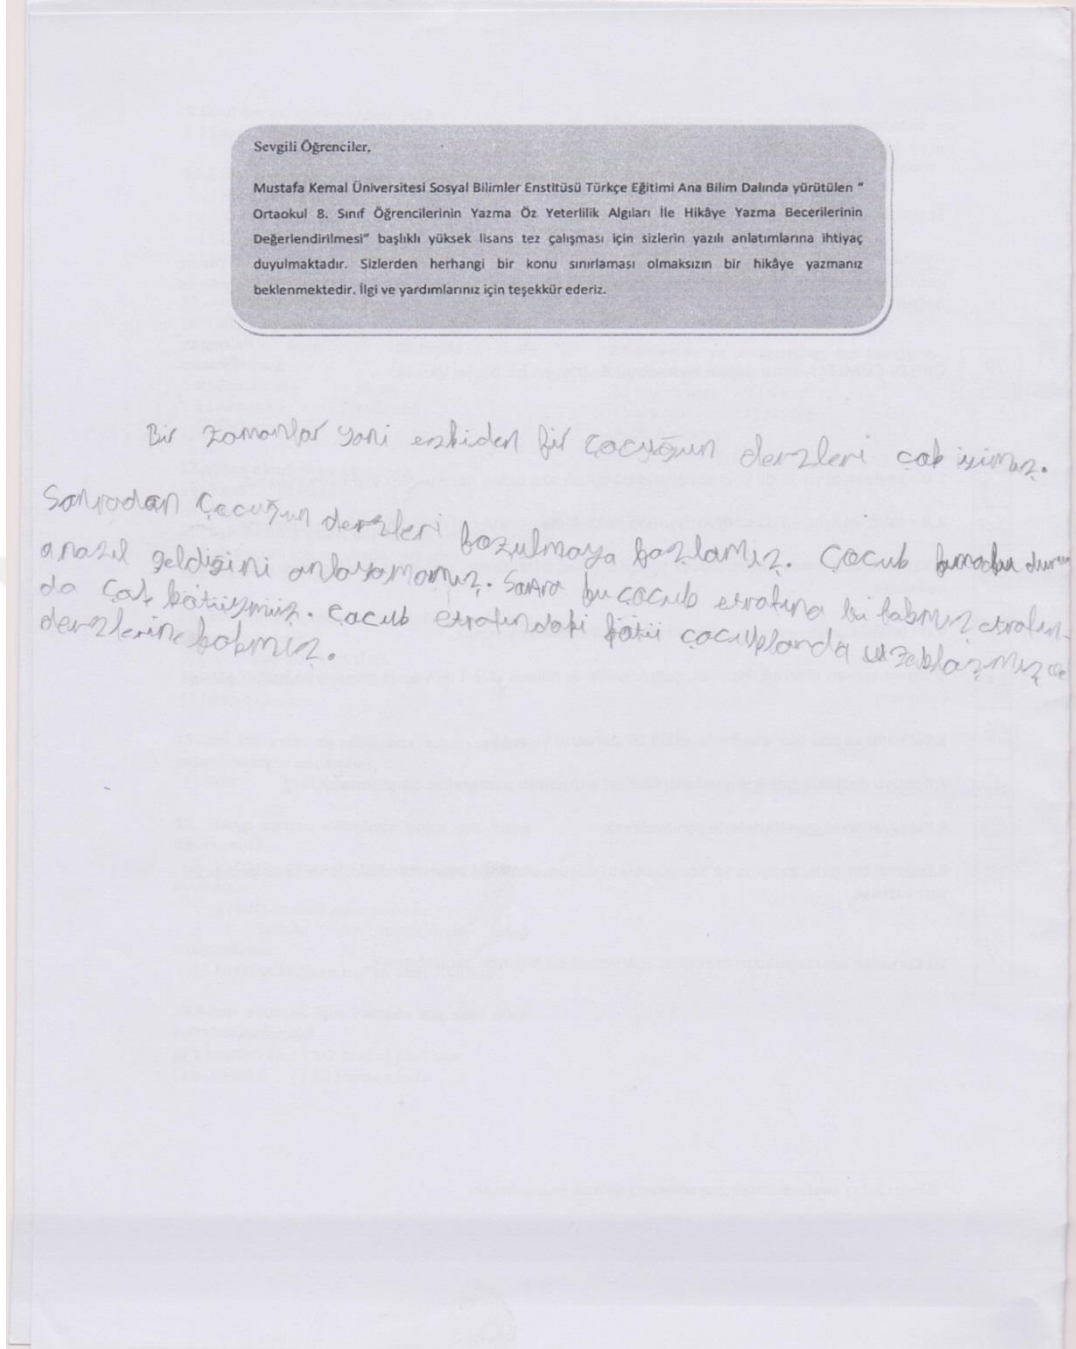 Sevgili Öğrenciler,
Mustafa Kemal Üniversitesi Sosyal Bilimler Enstitüsü Türkçe Eğitimi Ana Bilim Dalında yürütülen “
Ortaokul 8. Sınıf Öğrencilerinin Yazma Öz Yeterlilik Algıları İle Hikâye Yazma Becerilerinin
Değerlendirilmesi” başlıklı yüksek lisans tez çalışması için sizlerin yazılı anlatımlarına ihtiyaç
duyulmaktadır. Sizlerden herhangi bir konu sınırlaması olmaksızın bir hikâye yazmanız
beklenmektedir. İlgi ve yardımlarınız için teşekkür ederiz.
Bir zamanlar yani ezkiden bir çocuğun derzleri çok iyimiz.
Sonradan çocuğun derzleri bozulmaya bazlamız. Çocuk
anazıl geldiğini anlayamamız. Sonra bu çocuk etrafına bi bakmız etrafın-
da çok kötüymüz. Çocuk etrafındaki kötü çocuklarda uzaklazmız ve
derzlerine bakmız.